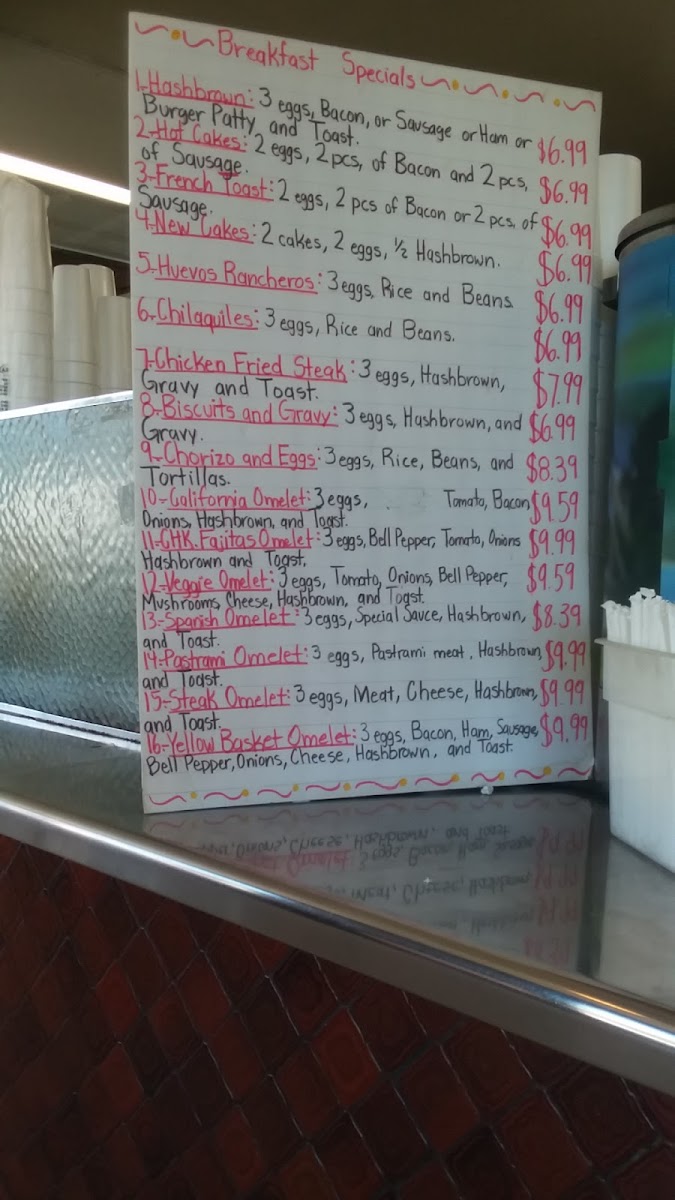 Breakfast Specials
1-Hashbrown: 3 eggs, Bacon, or Sausage or Ham or $6.99
Burger Patty, and Toast.
2-Hot Cakes: 2 eggs, 2 pcs, of Bacon and 2 pcs, $6.99
of Sausage.
3-French Toast: 2 eggs, 2 pcs of Bacon or 2 pcs. of $6.99
Sausage.
4-New Cakes: 2 cakes, 2 eggs, ½ Hashbrown. $6.99
5-Huevos Rancheros: 3 eggs, Rice and Beans $6.99
6-Chilaquiles: 3 eggs, Rice and Beans. $6.99
7-Chicken Fried Steak: 3 eggs, Hashbrown, $7.99
Gravy and Toast.
8-Biscuits and Gravy: 3 eggs, Hashbrown, and $6.99
Gravy.
9-Chorizo and Eggs: 3 eggs, Rice, Beans, and $8.39
Tortillas.
10-California Omelet: 3 eggs, Tomato, Bacon $9.59
Onions, Hashbrown, and Toast.
11-CHK. Fajitas Omelet: 3 eggs, Bell Pepper, Tomato, Onions $9.99
Hashbrown and Toast.
12-Veggie Omelet: 3 eggs, Tomato, Onions, Bell Pepper, $9.59
Mushrooms, Cheese, Hashbrown, and Toast.
13-Spanish Omelet: 3 eggs, Special Sauce, Hashbrown, $8.39
and Toast.
14-Pastrami Omelet: 3 eggs, Pastrami meat, Hashbrown $9.99
and Toast.
15-Steak Omelet: 3 eggs, Meat, Cheese, Hashbrown, $9.99
and Toast.
16-Yellow Basket Omelet: 3 eggs, Bacon, Ham, Sausage, $9.99
Bell Pepper, Onions, Cheese, Hashbrown, and Toast.